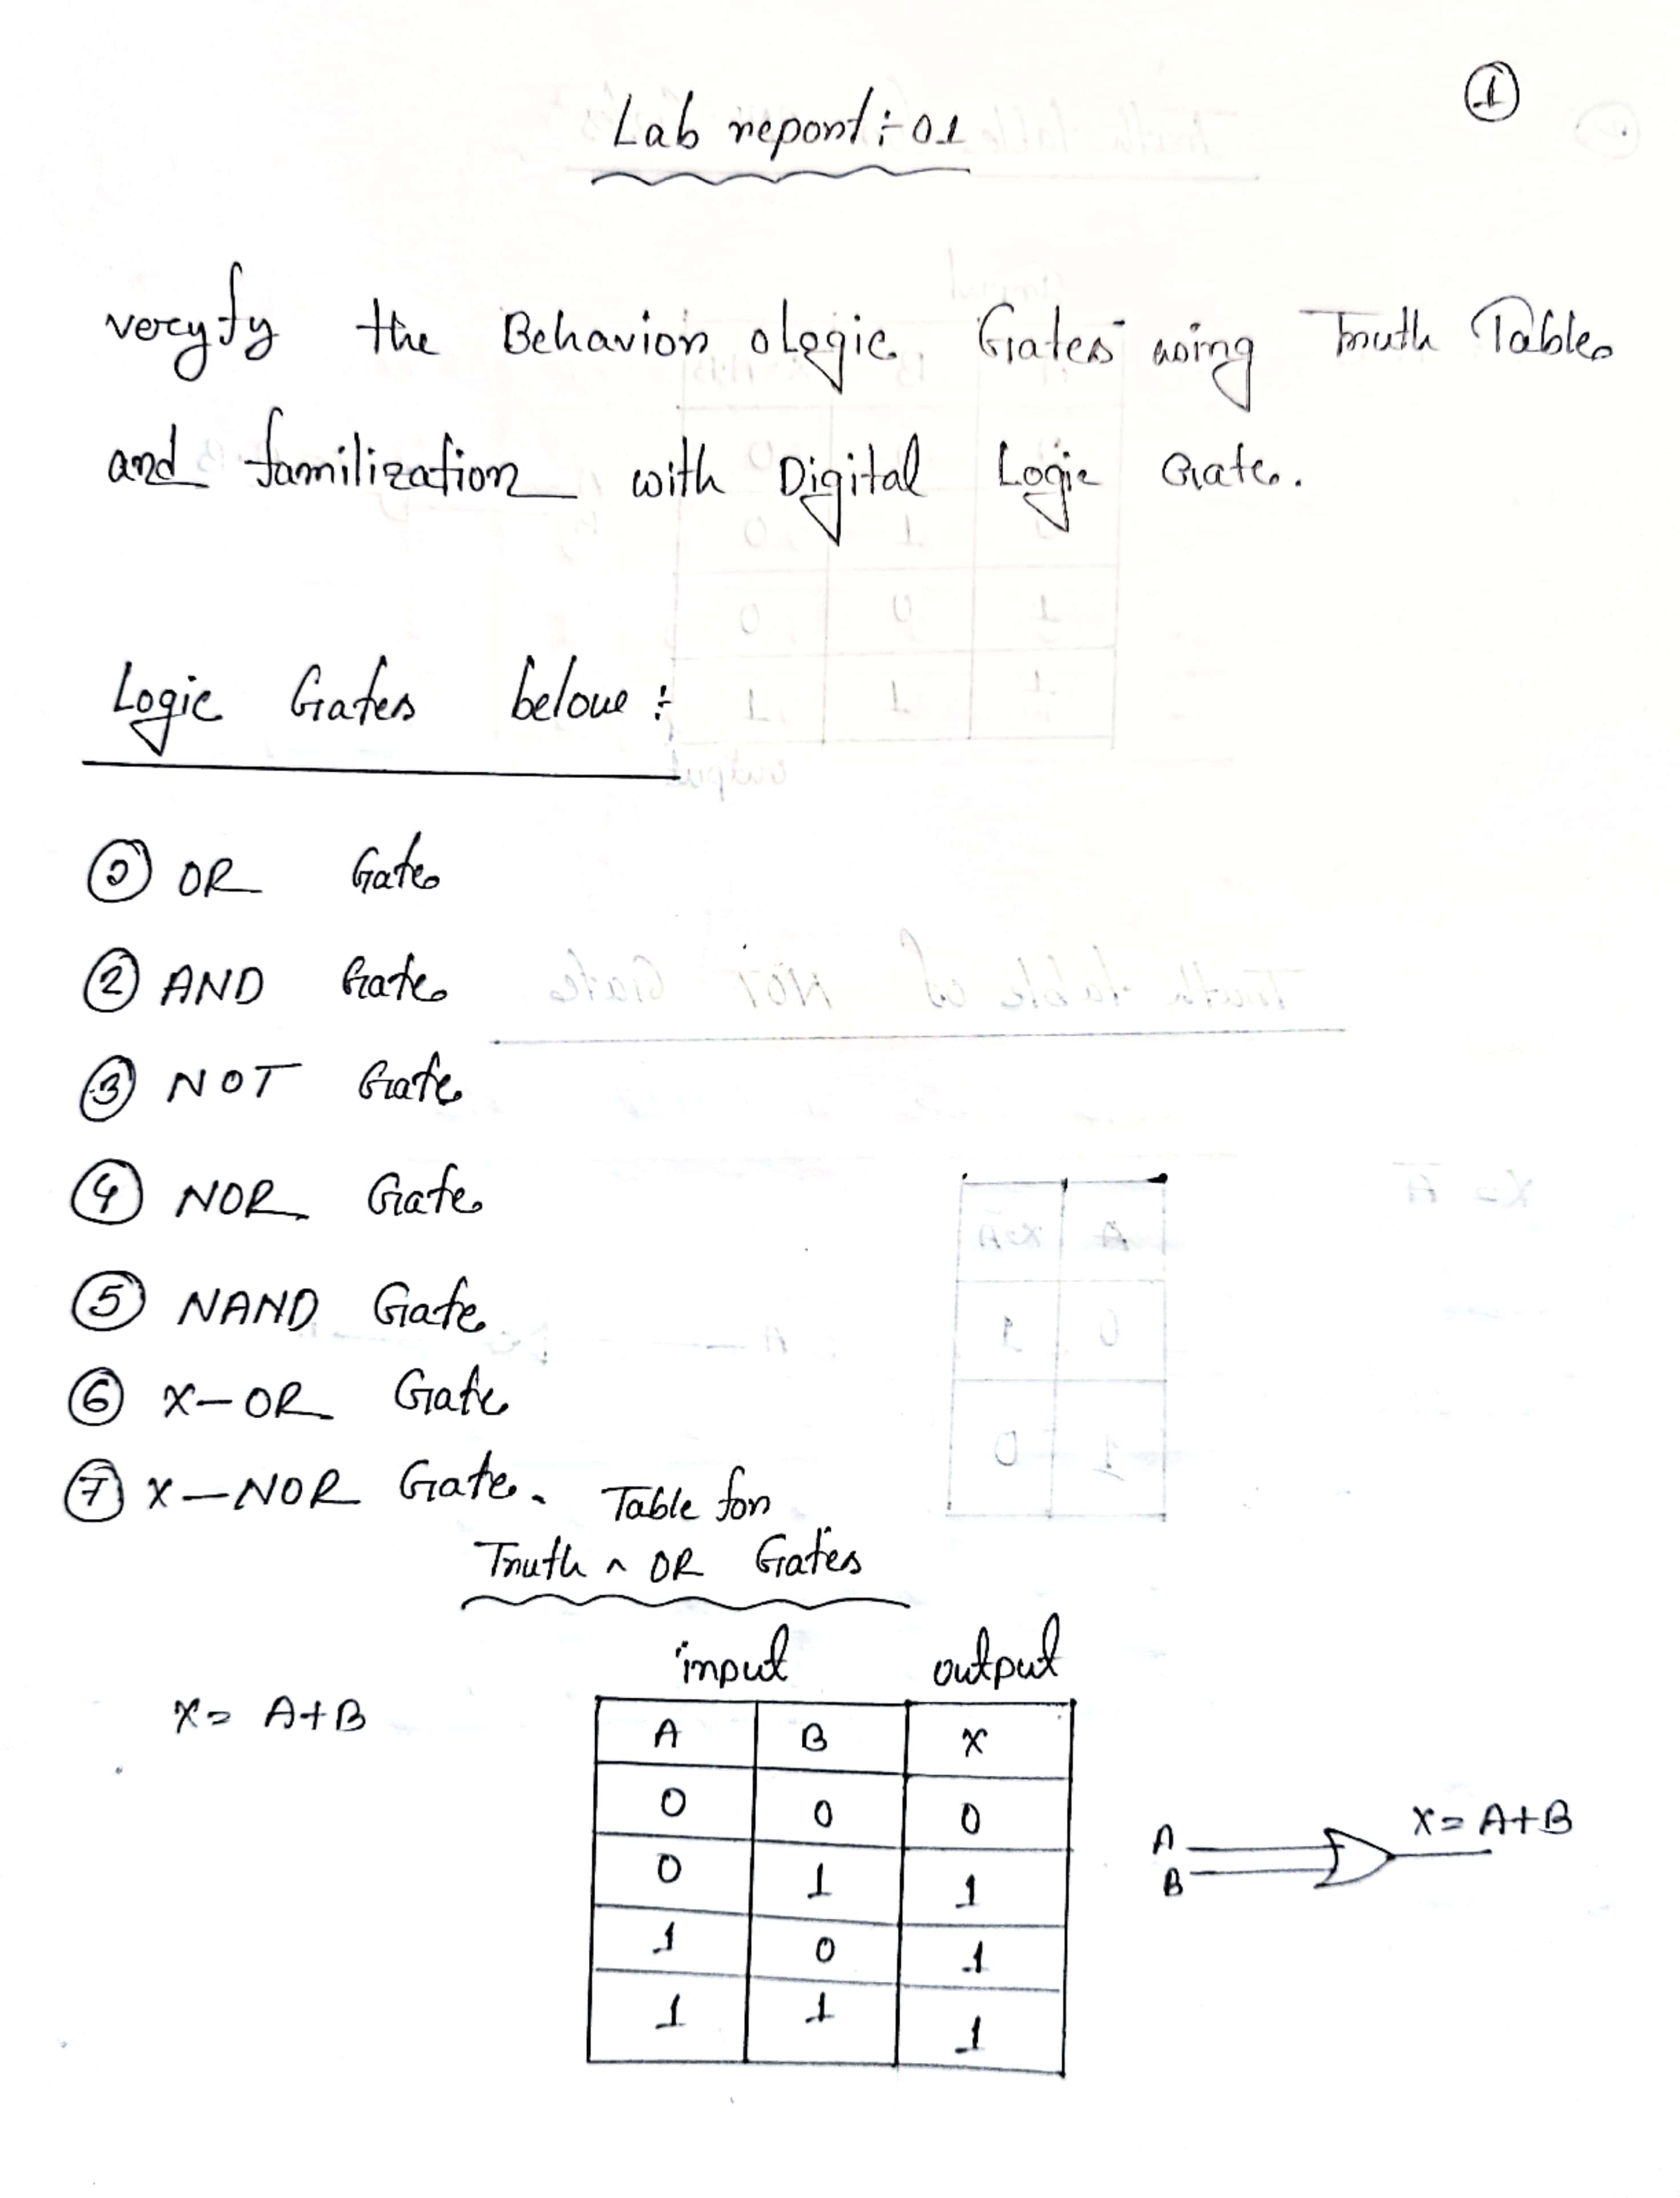 1
Lab report :- 01
veryfy the Behavior o Logic Gates using Truth Table
and familization with Digital Logic Gate.
Logic Gates beloue :-
① OR Gate
② AND Gate
③ NOT Gate
④ NOR Gate
⑤ NAND Gate
⑥ X-OR Gate
⑦ X-NOR Gate.
Table for
Truth ^ OR Gates
input output
X = A+B
A B X
0 0 0
0 1 1
1 0 1
1 1 1
A
B
X = A+B